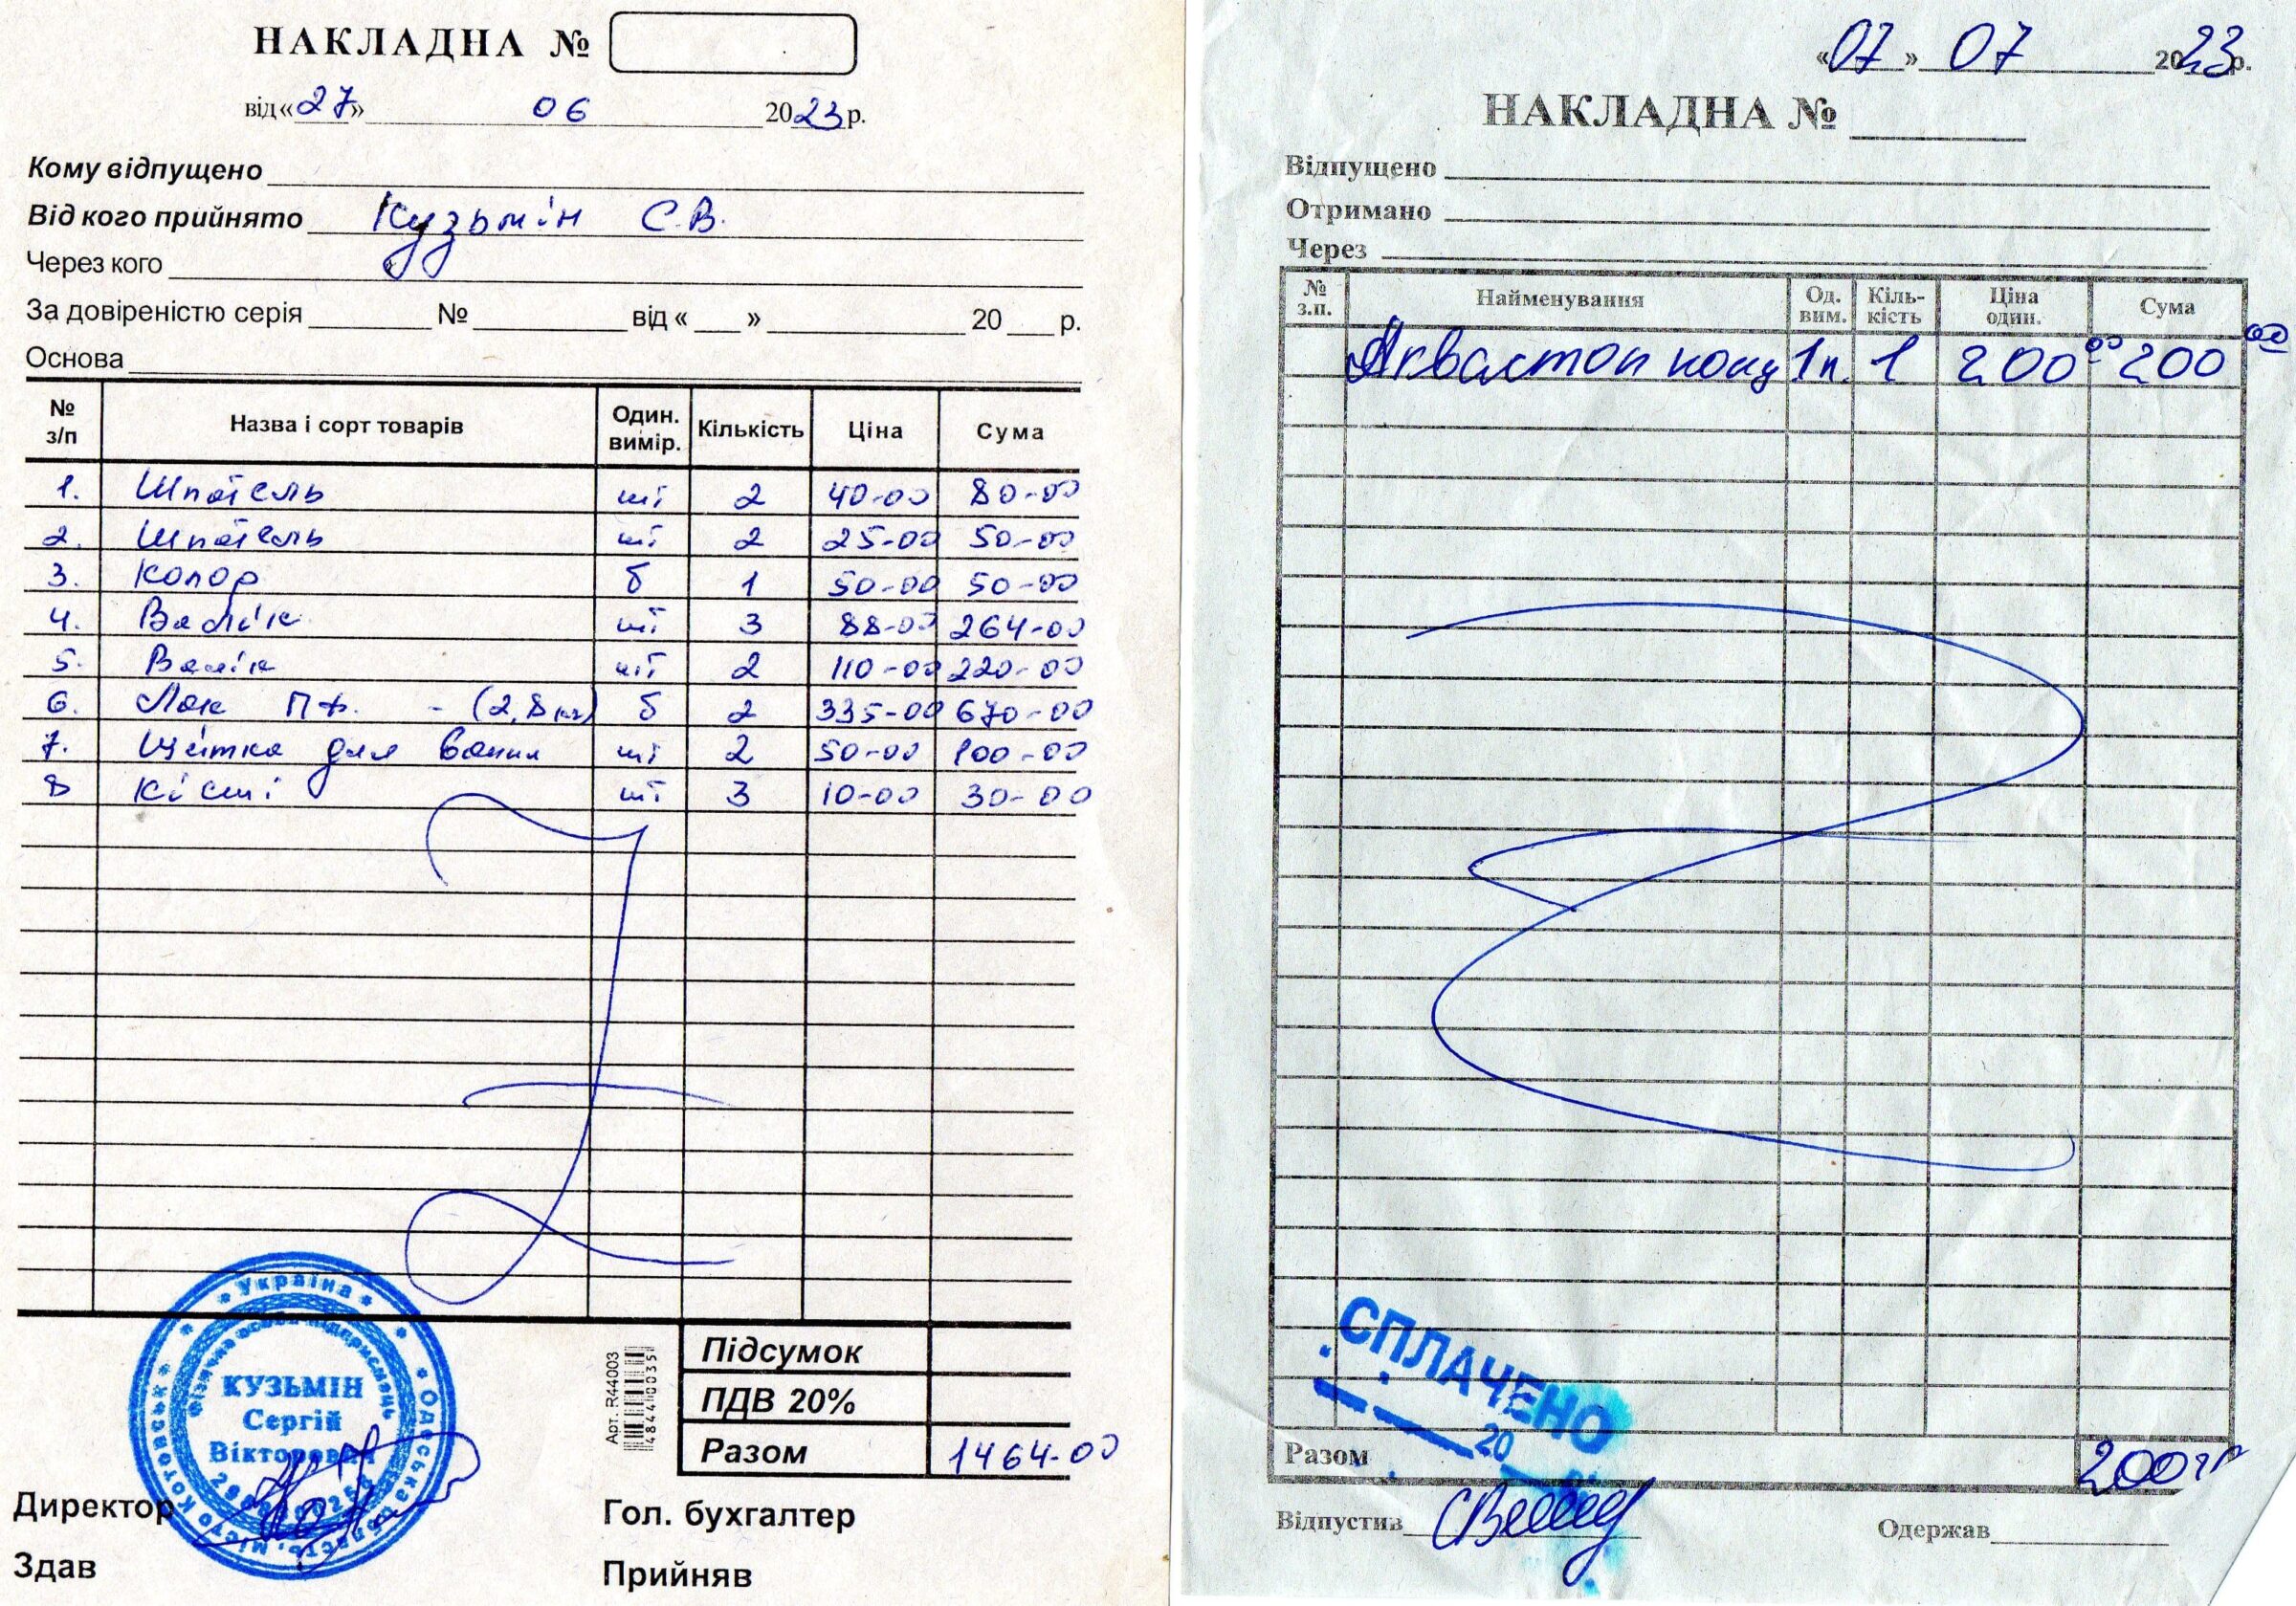 НАКЛАДНА №
від «27» 06 2023 р.
Кому відпущено
Від кого прийнято Кузьмін С.В.
Через кого
За довіреністю серія № від « » 20 р.
Основа
№ з/п Назва і сорт товарів Один. вимір. Кількість Ціна Сума
1. Шпатель шт 2 40-00 80-00
2. Шпатель шт 2 25-00 50-00
3. Колор б 1 50-00 50-00
4. Валік шт 3 88-00 264-00
5. Валік шт 2 110-00 220-00
6. Лак ПФ. - (2,8кг) б 2 335-00 670-00
7. Щітка для ванни шт 2 50-00 100-00
8 Кісті шт 3 10-00 30-00
Підсумок
ПДВ 20%
Разом 1464-00
Арт. R44003
Україна
Одеська область, місто Котовськ
Фізична особа підприємець
КУЗЬМІН
Сергій
Вікторович
Директор
Гол. бухгалтер
Здав
Прийняв
«07» 07 2023 р.
НАКЛАДНА №
Відпущено
Отримано
Через
№ з.п. Найменування Од. вим. Кіль-кість Ціна один. Сума
Аквастоп конц 1л. 1 200 00 200 00
СПЛАЧЕНО
20 р.
Разом 200 гр
Відпустив
Одержав